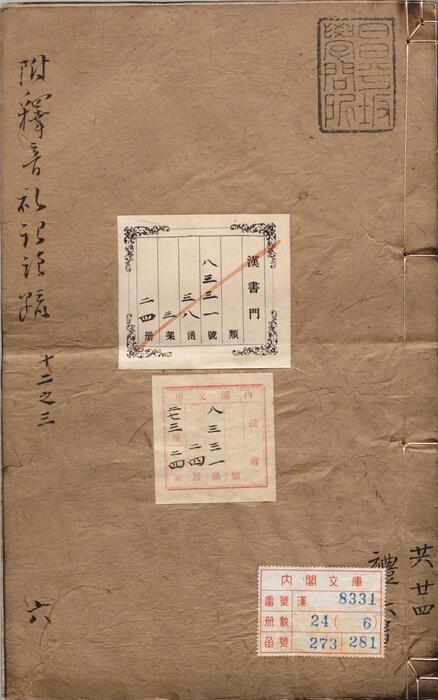 昌平坂
學問所
附釋音礼記註疏 十二之三
六
漢書門
類
八三三一號
三八函
三架
二四冊
内閣文庫
漢書
類
八三三一號
二四冊
二七三函 二四架
内閣文庫
番號 漢 8331
冊數 24 ( 6)
函號 273 281
共廿四
禮